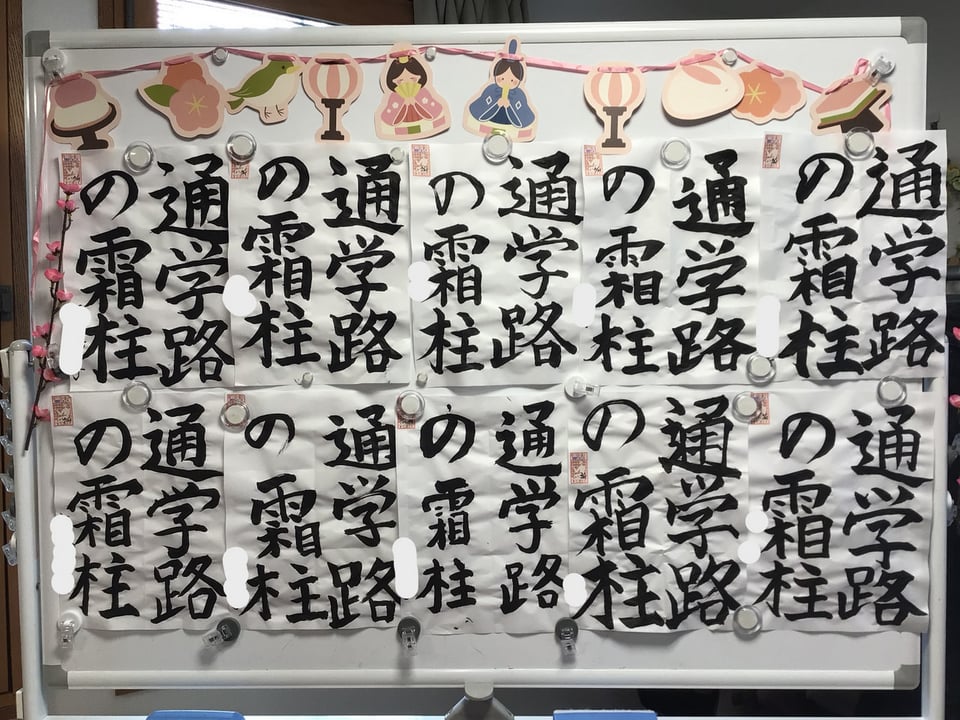 通学路
の霜柱
通学路
の霜柱
通学路
の霜柱
通学路
の霜柱
通学路
の霜柱
通学路
の霜柱
通学路
の霜柱
通学路
の霜柱
通学路
の霜柱
通学路
の霜柱